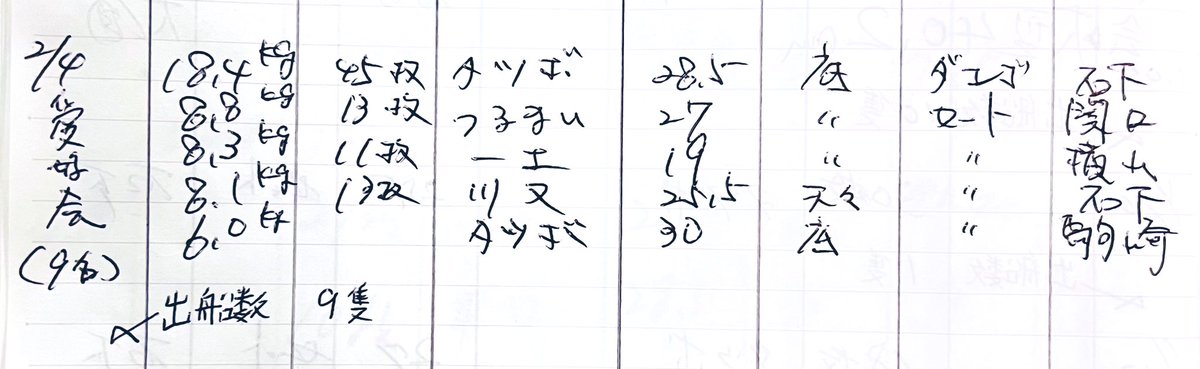 2/4 18.4kg 45枚 タツボ 28.5 底 ダンゴ 石下
愛 8.8kg 13枚 つるまい 27 〃 セート 関口
好 8.3kg 11枚 一土 19 〃 〃 横山
会 8.1kg 13枚 川又 25.5 天々 〃 石下
6.0kg タツボ 30 底 〃 駒崎
(9名)
出船数 9隻